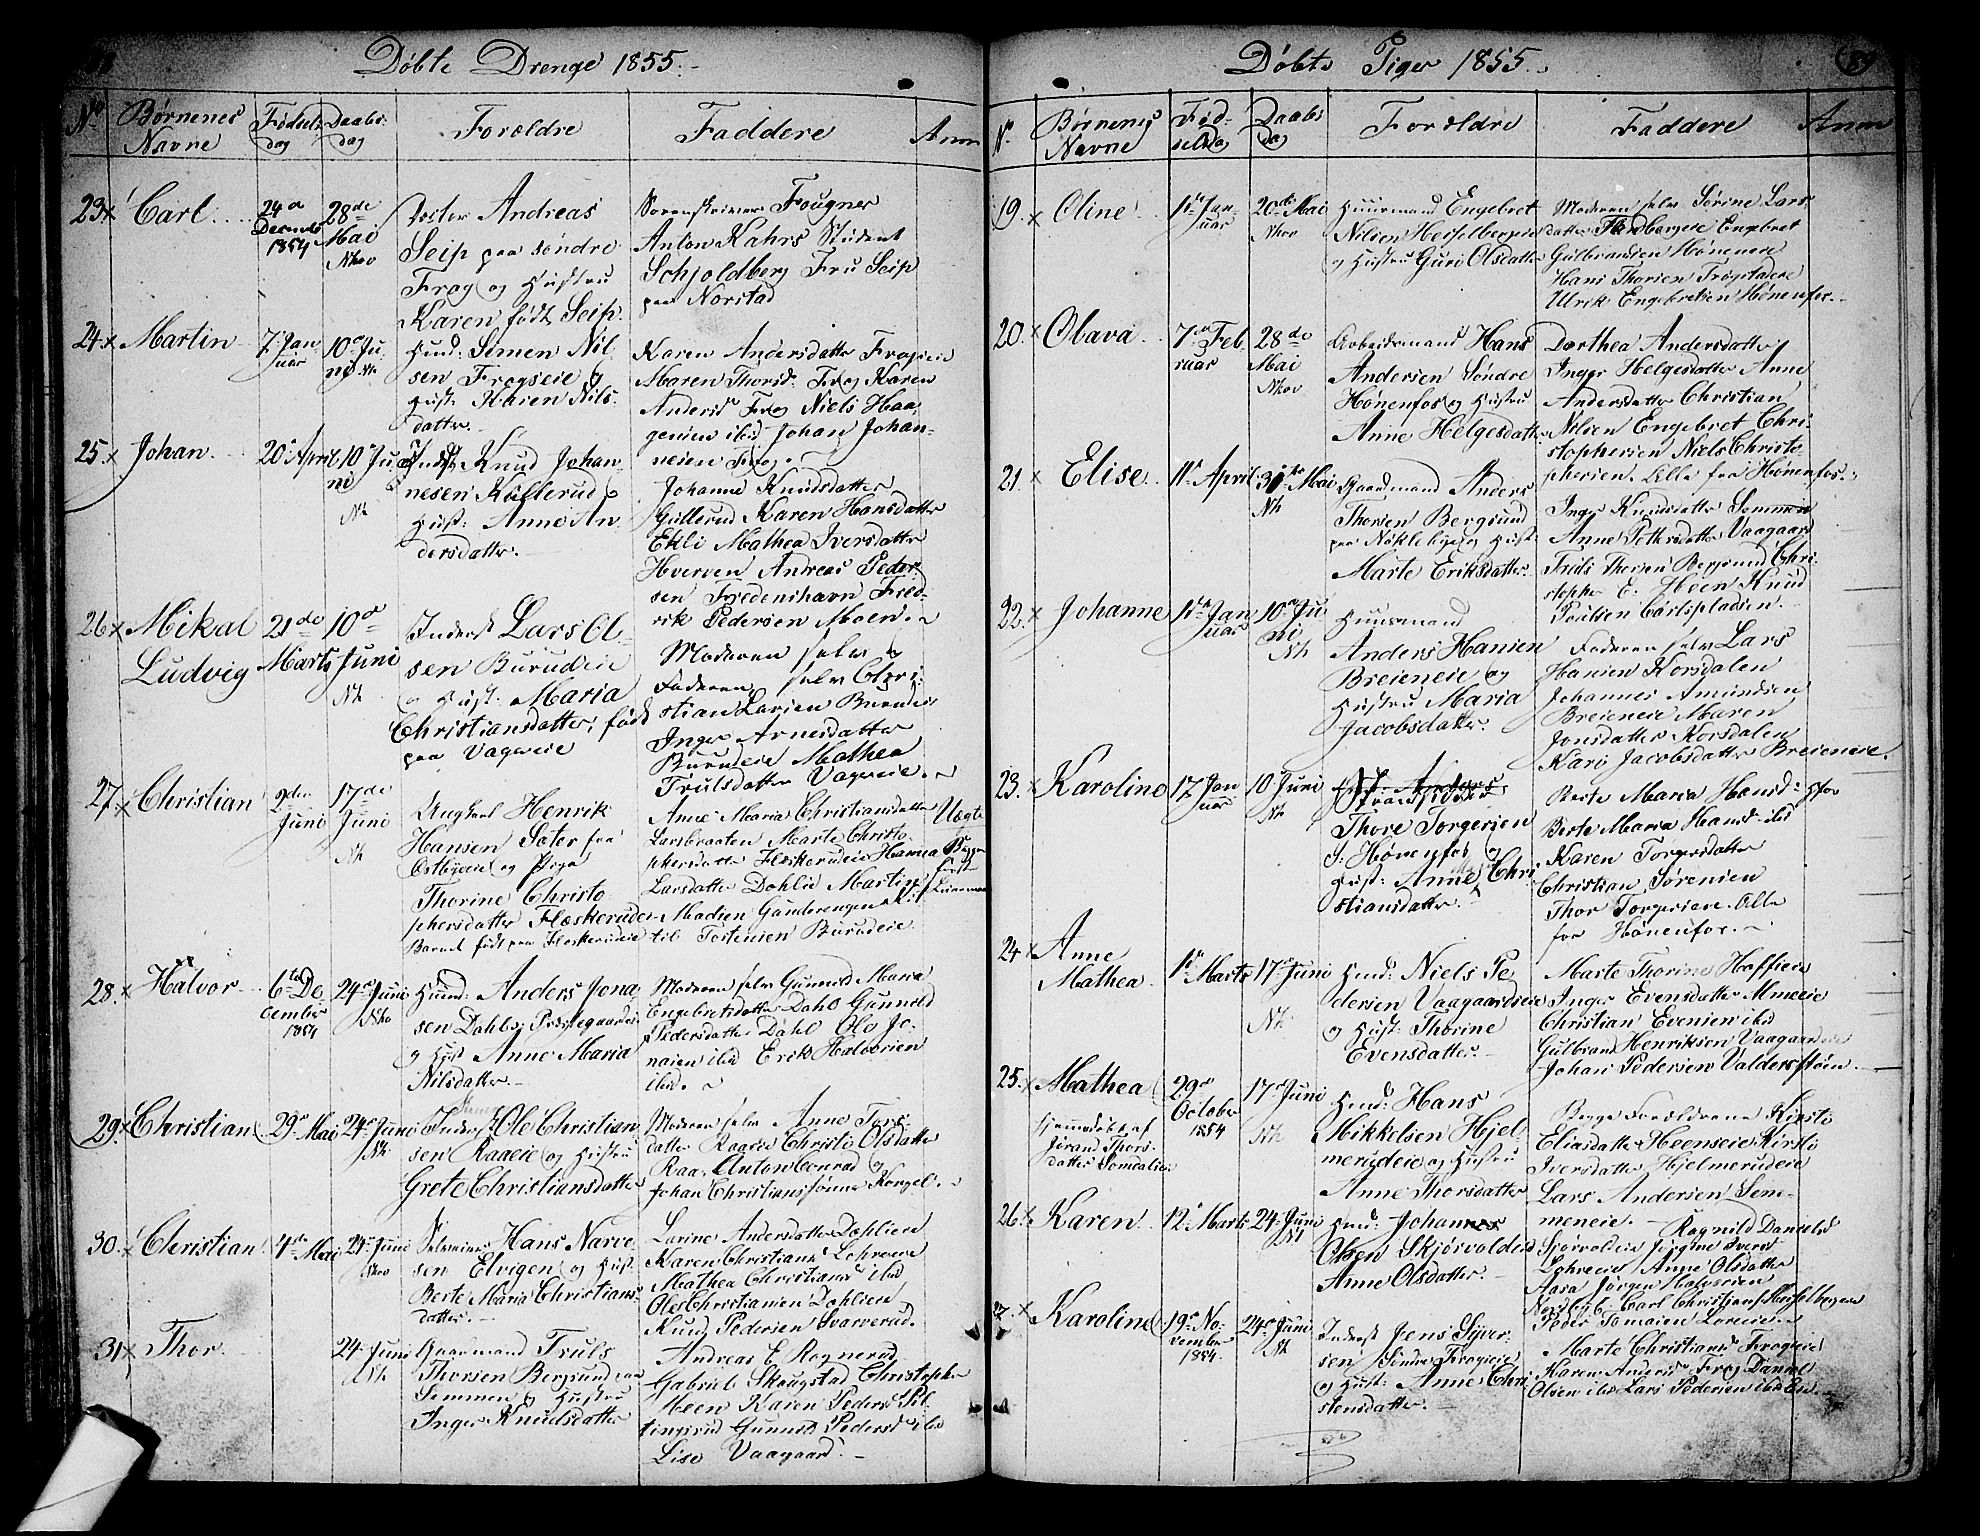 Døbte Drenge 1855.
No
Børnenes
Navne
Fødsels
dag
Daabs
dag
Forældre
Faddere
Anm
23 x Carl
24de
Decemb
1854
28de
Mai
Nkov
Andreas
Seip paa søndre
Frog og Hustru
Karen født Seip.
Sorenskriver Fougner
Anton Kahrs Student
Schjoldberg Fru Seip
paa Norstad
24 x Martin
7 Jan
uar
10de Ju
ni Nk
Huusd: Simen Nil
sen Frogseie og
Hust: Karen Nils
datter.
Karen Andersdatter Frogseie
Maren Thorsd. Frog Karen
Andersd Frog Niels Haa
gensen ibid Johan Johan
nesen Frog.
25 x Johan
20de April
10de Ju
ni
Nk
Inderst Knud Johan
nesen Kullerud og
Hust: Anne An
dersdatter.
Johanne Knudsdatter
Gullerud Karen Hansdatter
Ekli Mathea Iversdatter
Hverven Andreas Peder
sen Fredenshavn Fred
rik Pedersen Moen.
26 x Mikal
Ludvig
21de
Marts
10de
Juni
Nk
Inderst Lars Ol
sen Burudeie
og Hust. Maria
Christiansdatter, født
paa Vagseie
Moderen selv og
Faderen selv Chri
stian Larsen Burudeie
Inger Arnesdatter
Burudeie Mathea
Trulsdatter Vagseie.
27 x Christian
2den
Juni
17de
Juni
Nk
Ungkarl Henrik
Hansen Sater fra
Østbyeie og Pige
Thorine Christo
phersdatter Flæskerudeie
Barnet født paa Flæskerudeie
Anne Maria Christiansdatter
Larsbraaten Marte Christo
phersdatter Flæskerudeie Hansea
Larsdatter Dohlie Martin
Madsen Gunderengen
Tostensen Burudeie.
Uægte
28. x Halvor
6te De
cember
1854
24de Juni
Nkov
Huusd: Anders Jona
sen Dahl Præstegaardseie
og Hust Anne Maria
Nilsdatter.
Moderen selv Gunnild Maria
Engebretsdatter Dahl Gunnild
Pedersdatter Dahl Ole Jo
nasen ibid Erik Halvorsen
ibid.
29. x Christian
29de Mai
24de Juni
Nk
Inderst Ole Christian
sen Raaeie og Hustru
Grete Christiansdatter
Moderen selv Anne Tors
datter Raaeie Christi Olsdatter
Raa, Anton Conrad og
Johan Christianssønner Korgel.
30. x Christian
4de Mai
24de Juni
Nkov
Selveier Hans Narve
sen Elvigen og Hust
Berte Maria Christians
datter.
Larine Andersdatter Dæhlien
Karen Christiansd Lohreeie
Mathea Christiansd ibid
Ole Christiansen Dohlien
Knud Pedersen Svarverud.
31 x Thor
24de Juni
Nk
Gaarmand Truls
Thorsen Bergsund paa
Semmen og Hustru
Inger Knudsdatter
Andreas E Rognerud
Gabriel Skougstad Christopher
Heen Karen Pedersd Pil
tingsrud Gunnild Pedersd ibid
Lise Vaagaard.
Døbte Piger 1855.
89
No.
Børnenes
Navne
Fød-
selsdag
Daabs
dag
Forældre
Faddere
Anm
19. x Oline
1ste Jan
uar
20de Mai
Nkov
Huusmand Engebret
Nilsen Hesselbergseie
og Hustru Guri Olsdatter
Moderen selv Sørine Lars
datter Hesselbergeie Engebret
Gulbrandsen Hønenese
Hans Thorsen Trøgstadeie
Ulrik Engebretsen Hønenfos.
20. x Olava
7de Feb
ruar
28de
Mai
Nkov
Arbeidsmand Hans
Andersen Søndre
Hønenfos og Hustru
Anne Helgesdatter
Dorthea Andersdatter
Inger Helgesdatter Anne
Andersdatter Christian
Nilsen Engebret Chri
stophersen Niels Christo
phersen. Alle fra Hønenfos.
21. x Elise
11te April
31te Mai
Nk
Gaardmand Anders
Thorsen Bergsund
paa Nøkleby og Hust
Marte Eriksdatter.
Inger Knudsdatter Semmen
Anne Pettersdatter Vaagaard
Truls Thorsen Bergsund Chri
stopher E. Heen Knud
Poulsen Carlspladsen.
22. x Johanne
11te Jan
uar
10de Ju
ni
Nk
Huusmand
Anders Hansen
Breieneie og
Hustru Maria
Jacobsdatter.
Faderen selv Lars
Hansen Korsdalen
Johannes Amundsen
Breieneie Maren
Jonsdatter Korsdalen
Kari Jacobsdatter Breieneie.
23. x Karoline
17 Jan
uar
10 Juni
Nk
Thore Torgersen
S: Hønenfos og
Hust: Anne Chri
stiansdatter.
Berte Maria Hansd: Hfos
Berte Maria Hansd. ibd
Karen Torgersdatter
Christian Sørensen
Thor Torgersen. Alle
fra Hønenfos.
24 x Anne
Mathea
1ste Marts
17de Juni
Nk
Huusd: Niels Pe
dersen Vaagaardseie
og Hust: Thorine
Evensdatter.
Marte Thorine Hoffseie
Inger Evensdatter Almeie
Christian Evensen ibid
Gulbrand Henriksen Vaagaardseie
Johan Pedersen Valdersstøen.
25. x Mathea
hjemmedøbt af
Jørand Thors
datter Semeulien
29de
October
1854
17de Juni
Nk
Huusd: Hans
Mikkelsen Hjel
merudeie og Hustru
Anne Thorsdatter
Begge Forældrene Kirsti
Eliasdatter Heenseie Kirsti
Iversdatter Hjelmerudeie
Lars Andersen Sem
meneie.
26. x Karen
12te Marts
24de Juni
Nk
Huusd: Johannes
Olsen Skjørvoldeie
Anne Olsdatter.
Ragnild Danielsd
Sjørvoldeie Jørgine Iversd
Lohreeie Anne Olsdatter
Aasa Jørgen Halvorsen
Nordby. Carl Christians Hesselbergeie
Peder Tomasen Loreeie
27. x Karoline
19de No
vember
1854.
24de Juni
Nk
Inderst Jens Syver
sen Søndre Frogseie
og Hust: Anne Chri
stensdatter.
Marte Christiansd Frogseie
Karen Andersd Frog Daniel
Olsen ibid Lars Pedersen ibid